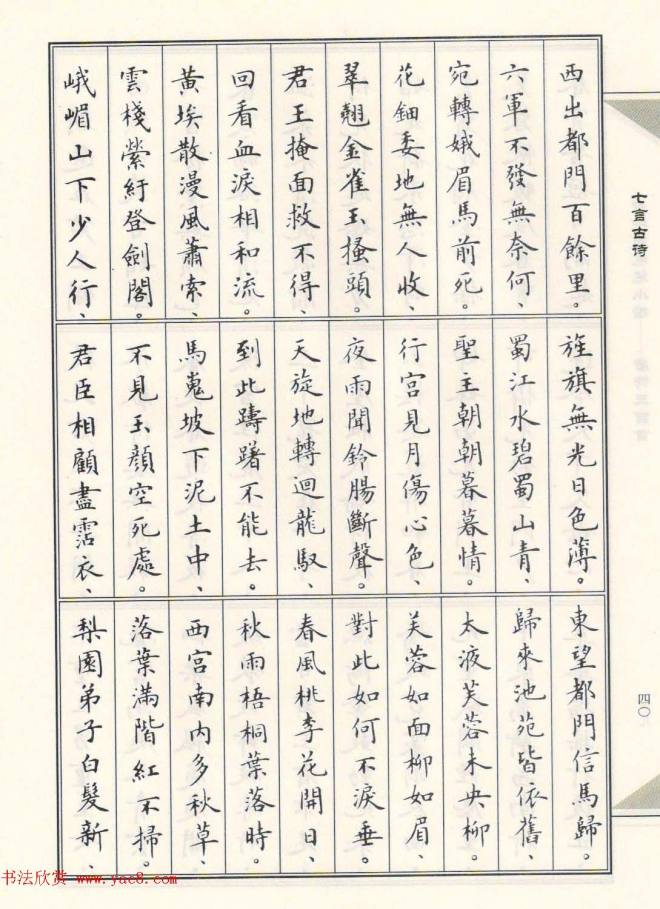 七言古诗
西出都門百餘里。
六軍不發無奈何、
宛轉娥眉馬前死。
花鈿委地無人收、
翠翹金雀玉搔頭。
君王掩面救不得、
回看血淚相和流。
黃埃散漫風蕭索、
雲棧縈紆登劍閣。
峨嵋山下少人行、
旌旗無光日色薄。
蜀江水碧蜀山青、
聖主朝朝暮暮情。
行宮見月傷心色、
夜雨聞鈴腸斷聲。
天旋地轉迴龍馭、
到此躊躇不能去。
馬嵬坡下泥土中、
不見玉顏空死處。
君臣相顧盡霑衣、
東望都門信馬歸。
歸來池苑皆依舊、
太液芙蓉未央柳。
芙蓉如面柳如眉、
對此如何不淚垂。
春風桃李花開日、
秋雨梧桐葉落時。
西宮南內多秋草、
落葉滿階紅不掃。
梨園弟子白髮新、
四〇
书法欣赏 www.yac8.com